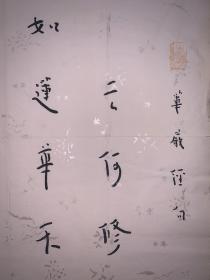 華嚴經句
云何修
如蓮華不